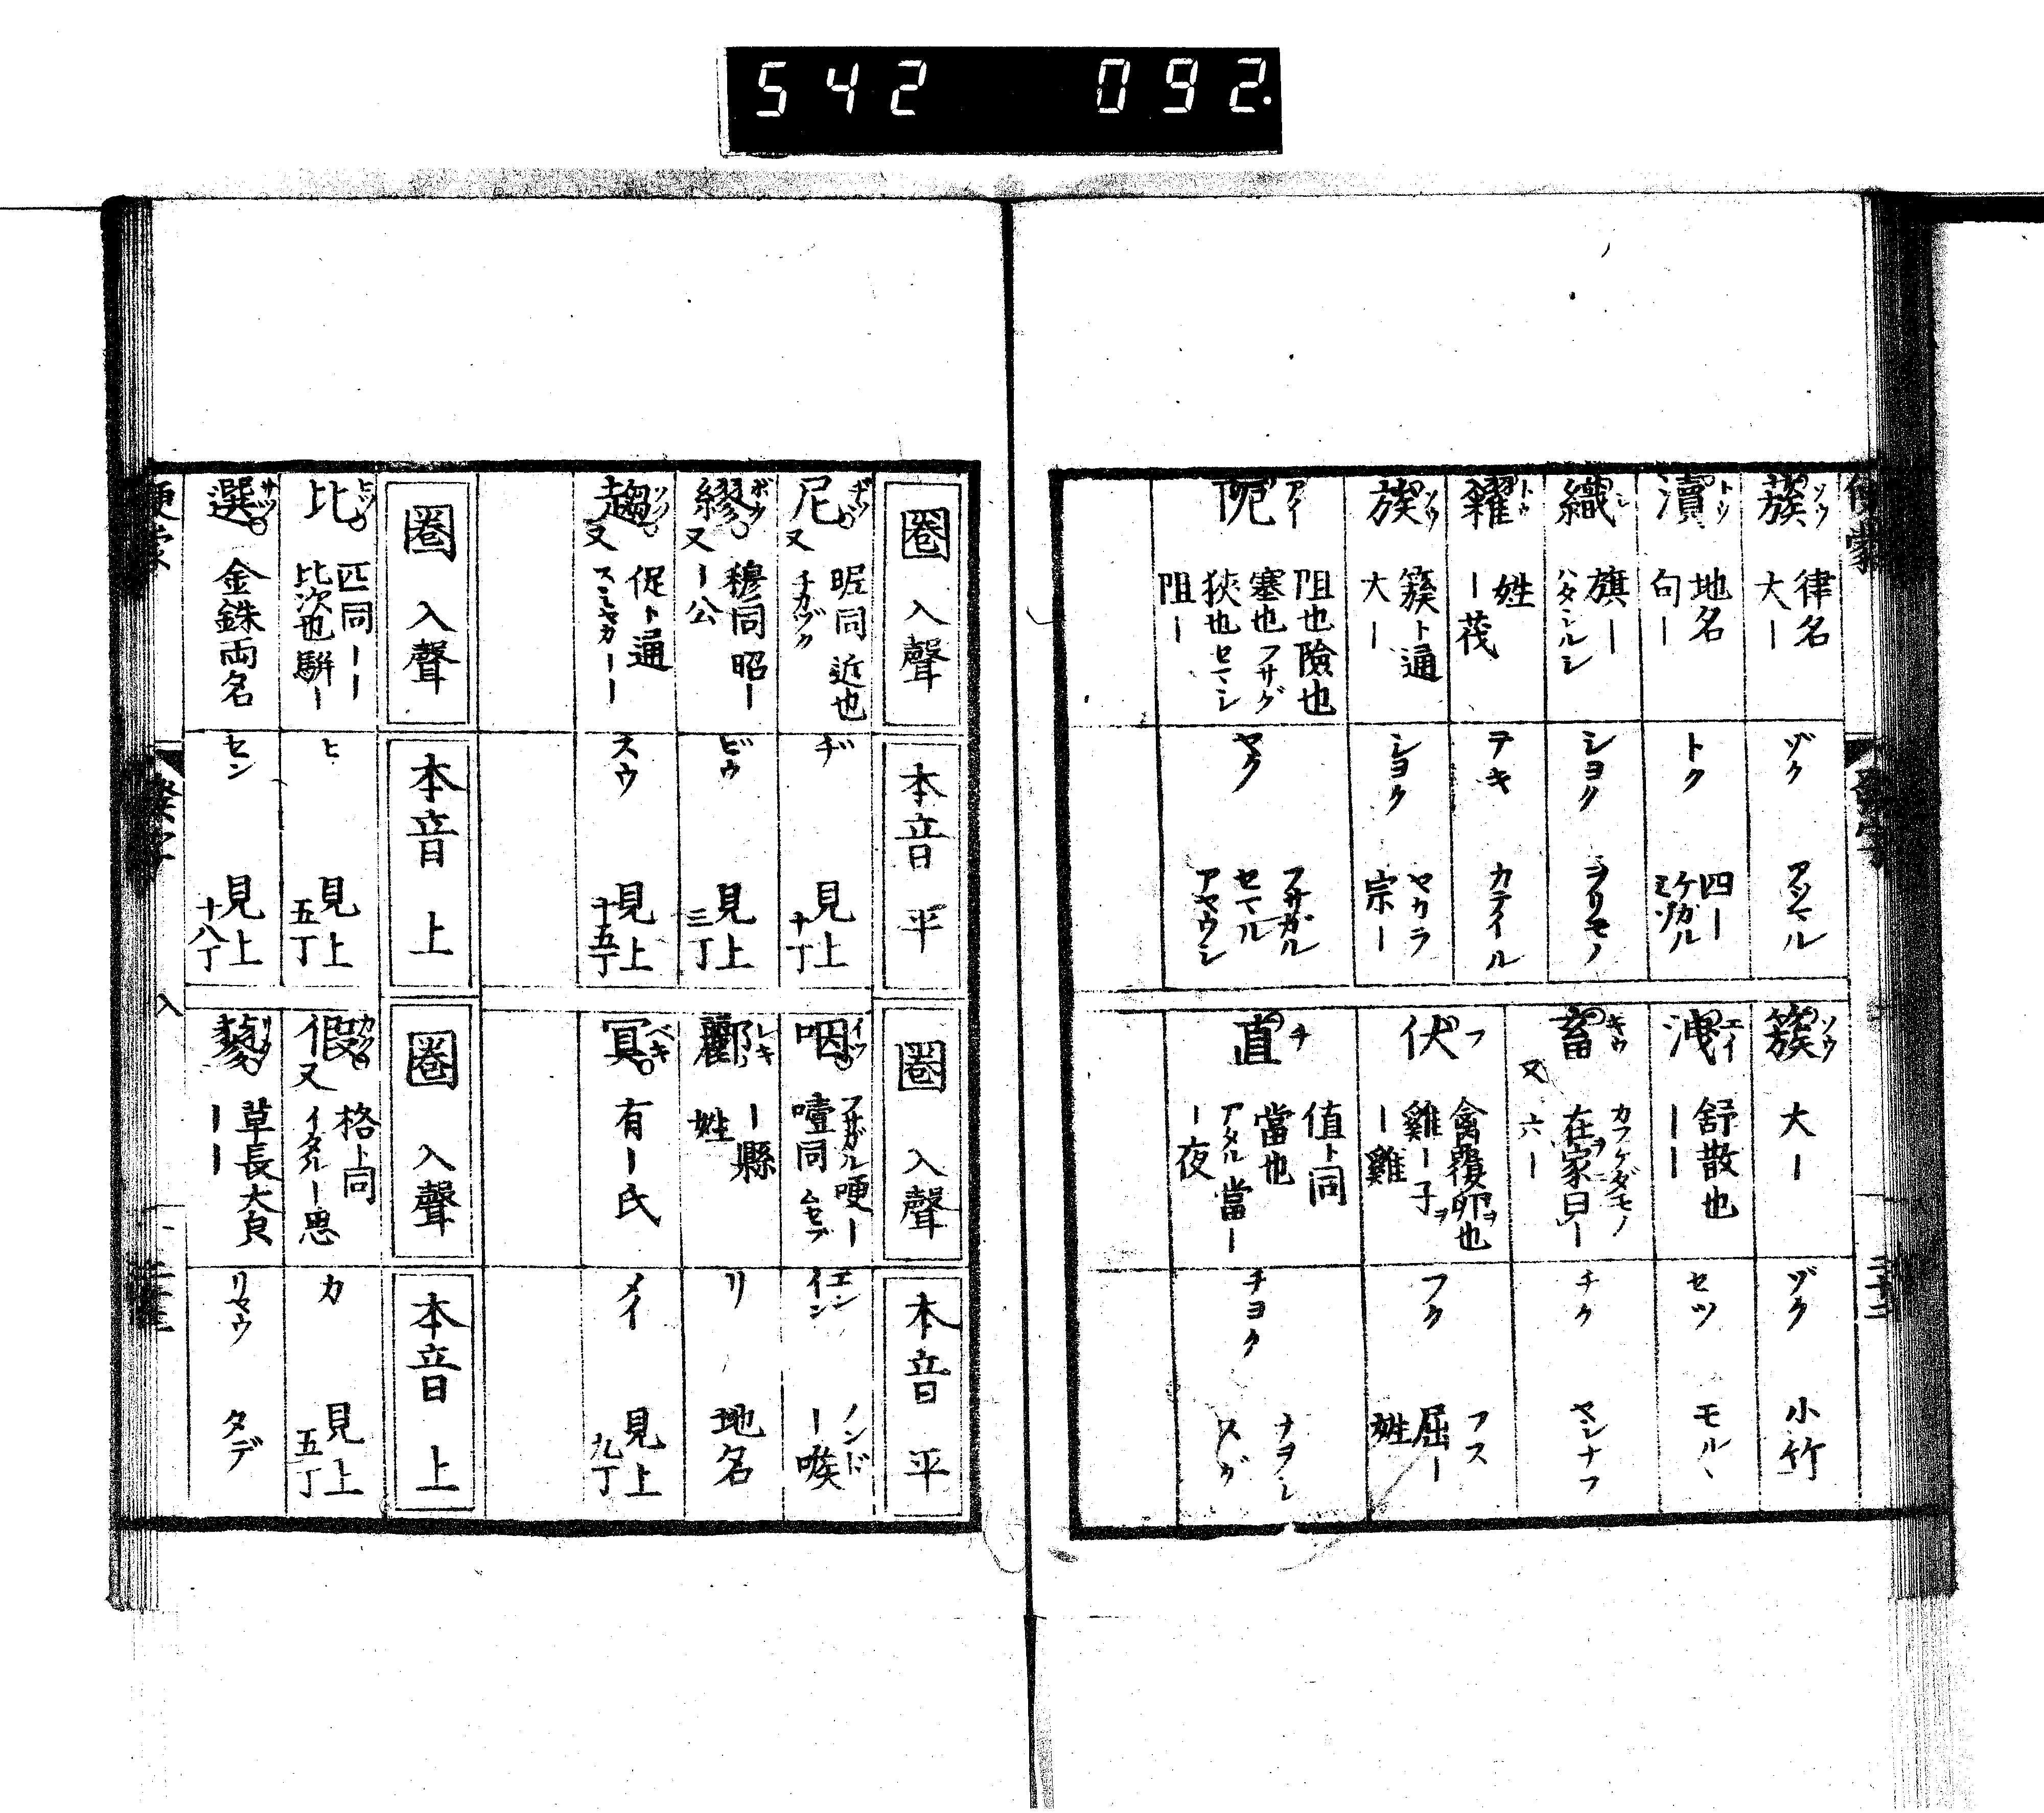 542 092.
蔟 ソウ 律名 大ー
ゾク アツマル
瀆 トウ 地名 句ー
トク 四ー ケガル ミゾ
織 シ 旗ー ハタシルシ
シヨク ヲリモノ
糴 トウ 姓 ー茂
テキ カテイル
族 ソウ 簇ト通 大ー
シヨク ヤカラ 宗ー
阨 アイ 阻也險也 塞也フサグ 狹也セマシ 阻ー
ヤク フサガル セマル アヤウシ
簇 ソウ 大ー
ゾク 小竹
洩 エイ 舒散也 ーー
セツ モルヽ
畜 キウ 又 カフケダモノ 在家ヲ曰ー 六ー
チク ヤシナフ
伏 フ 禽覆卵ヲ也 雞ー子ヲ ー雞
フク フス 屈ー 姓
直 チ 値ト同 當也 アタル當ー ー夜
チヨク ナヲシ スグ
圏 入聲
本音 平
尼 ヂツ 又 昵同 近也 チカヅク
ヂ 見上 十丁
繆 ボク 又 穆同 昭ー ー公
ビウ 見上 三丁
趨 ソク 又 促ト通 スミヤカーー
スウ 見上 十五丁
圏 入聲
本音 平
咽 イツ フサガル哽ー 噎同ムセブ
エン イン ノンド ー喉
酈 レキ ー縣 姓
リ 地名
冥 ベキ 有ー氏
メイ 見上 九丁
圏 入聲
本音 上
比 ヒツ 匹同ーー 比次也駢ー
ヒ 見上 五丁
選 サツ 金銖両名
セン 見上 十八丁
圏 入聲
本音 上
假 カク 又 格ト同 イタルー思
カ 見上 五丁
蓼 リク 草長大皃 ーー
リヤウ タデ
入